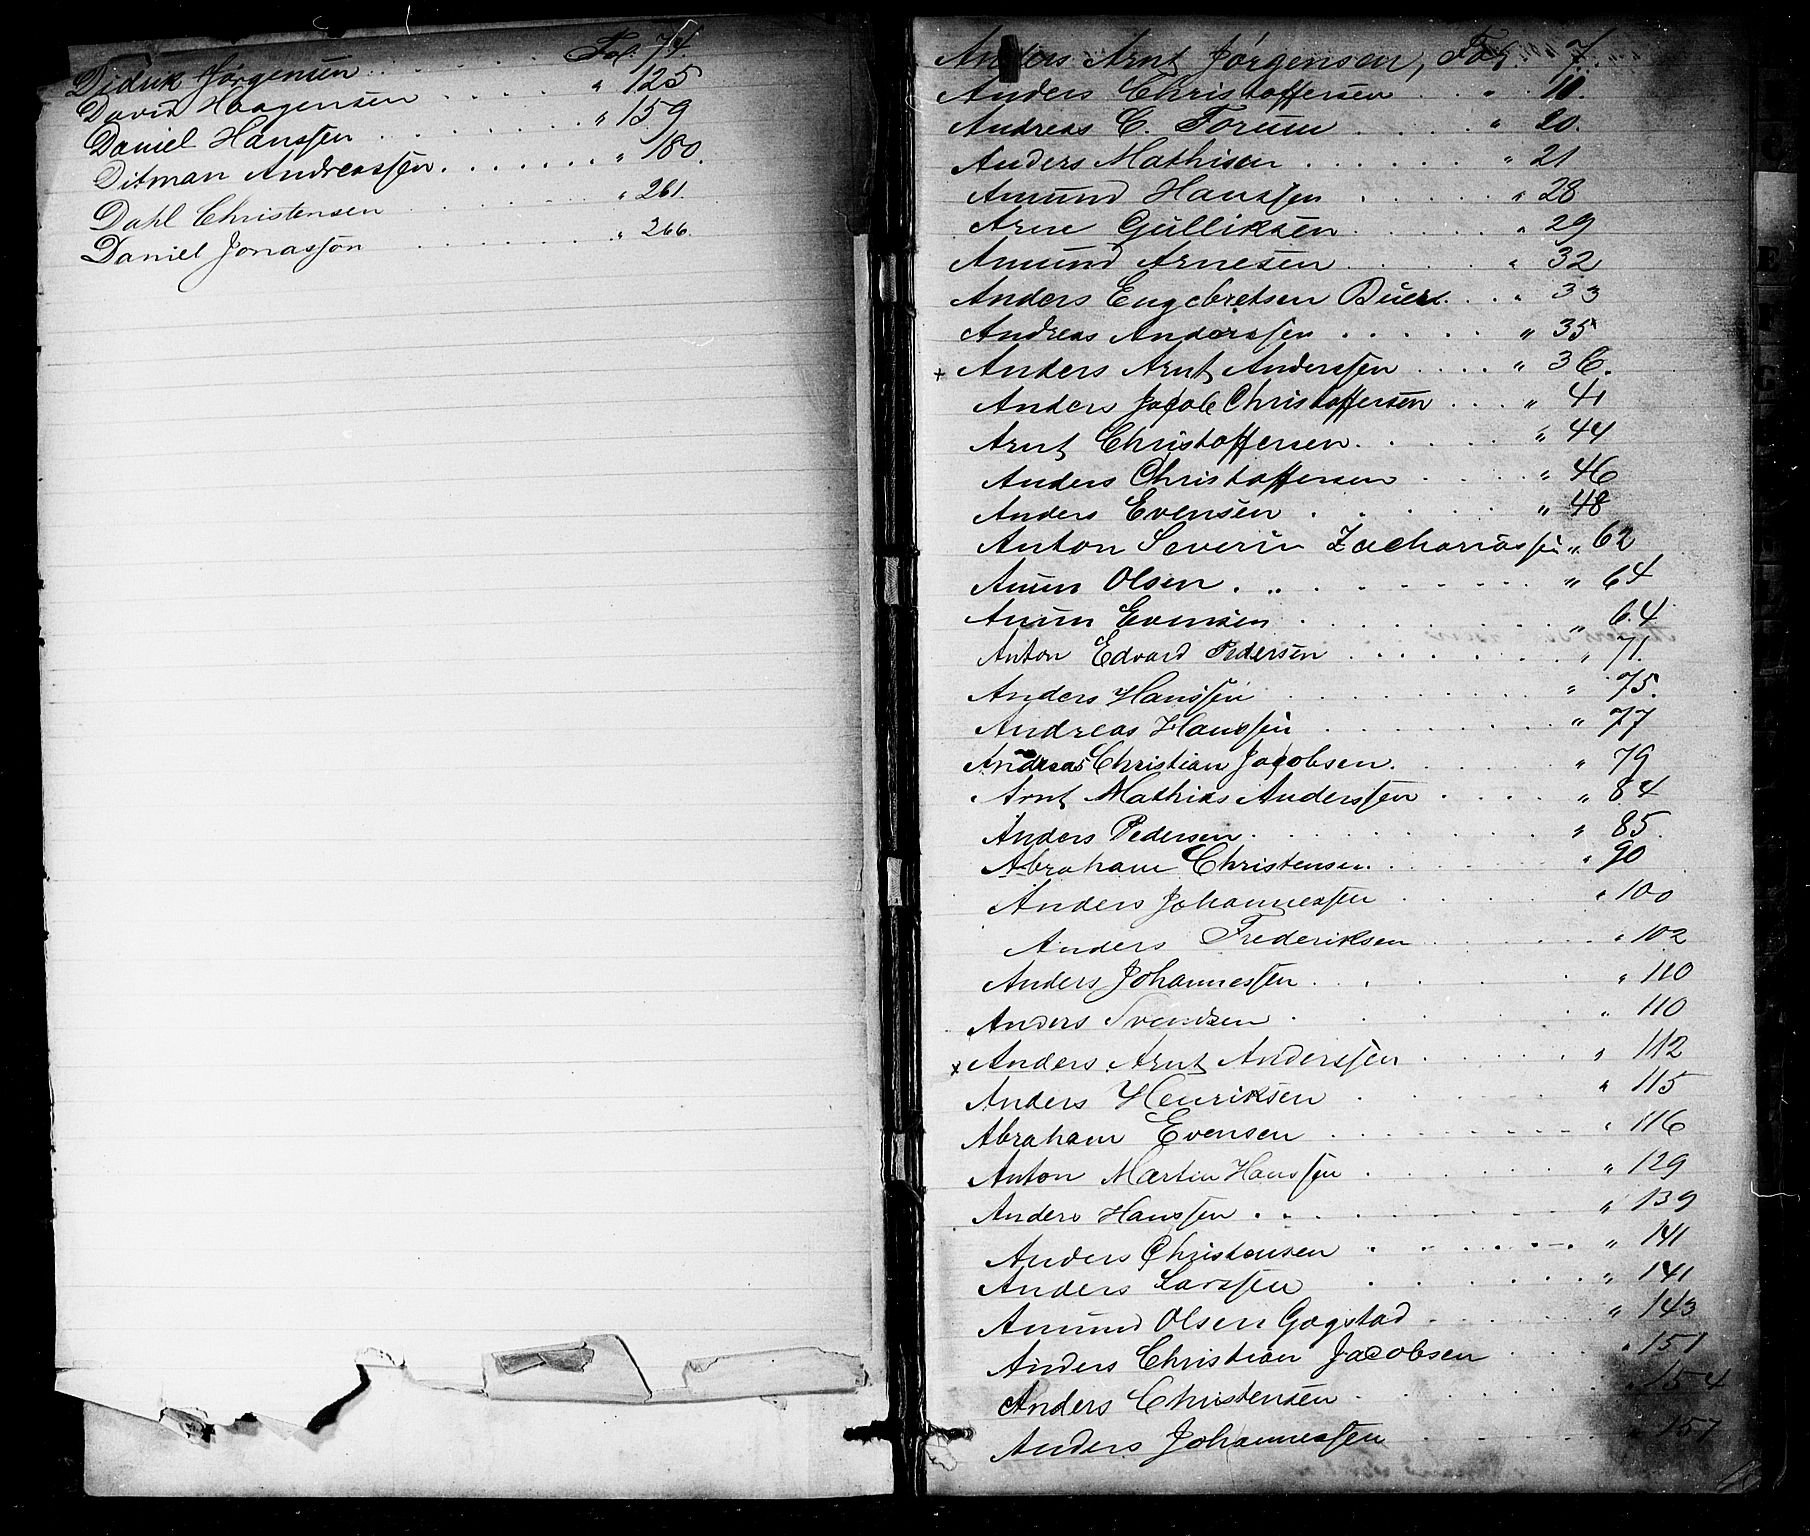 Didrik Jørgensen . . . . . . Fol. 74.
David Haagensen . . . . . " 125
Daniel Hanssen . . . . . . . " 159
Ditman Andreassen . . . . . . " 180.
Dahl Christensen . . . . . . " 261.
Daniel Jonassön . . . . . . " 266.
Anders Arnt Jørgensen, Fol. 7.
Anders Christoffersen . . . " 10.
Andreas C. Forum . . . . " 20.
Anders Mathisen . . . . . . " 21
Amund Hanssen . . . . . " 28
Arne Gulliksen . . . . . " 29
Amund Arnesen . . . . . " 32
Anders Engebretsen Buer . . . " 33
Andreas Anderssen . . . . . " 35
+ Anders Arnt Anderssen . . . . " 36.
Anders Jacob Christoffersen . . . " 41
Arnt Christoffersen . . . . . " 44
Anders Christoffersen . . . . " 46
Anders Evensen . . . . . " 48
Anton Severin Zachariassen " 62
Anun Olsen . . . . . . . . " 64
Anun Evensen . . . . . . . " 64
Anton Edvard Pedersen . . . . . . " 71.
Anders Hanssen . . . . . . . " 75.
Andreas Hanssen . . . . . . " 77
Andreas Christian Jacobsen . . . . . " 79
Arnt Mathias Anderssen . . . . " 84
Anders Pedersen . . . . . . . . " 85.
Abraham Christensen . . . . . . " 90
Anders Johannessen . . . . . " 100
Anders Frederiksen . . . . . " 102
Anders Johannessen . . . . . " 110
Anders Svendsen . . . . . " 110
x Anders Arnt Anderssen . . . . . " 112
Anders Henriksen . . . . . " 115
Abraham Evensen . . . . . . . " 116
Anton Martin Hanssen . . . . . " 129
Anders Hanssen . . . . . . . . " 139
Anders Christensen . . . . . . . " 141
Anders Larssen . . . . . . " 141
Amund Olsen Gogstad . . . . . " 143
Anders Christian Jacobsen . . . . " 151
Anders Christensen . . . . . . " 154
Anders Johannessen . . . . . . " 157